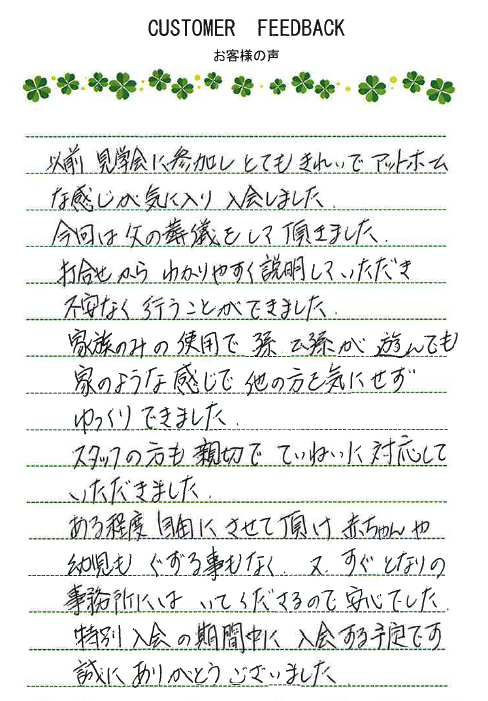 CUSTOMER FEEDBACK
お客様の声
以前 見学会に参加し とても きれいで アットホーム
な感じが気に入り 入会しました.
今回は父の葬儀をして頂きました.
打合せから わかりやすく説明していただき
不安なく 行うことができました.
家族のみの使用で 孫 ひ孫が 遊んでも
家のような感じで 他の方を気にせず
ゆっくりできました.
スタッフの方も親切で ていねいに対応して
いただきました.
ある程度 自由に させて頂け 赤ちゃんや
幼児も ぐずる事もなく. 又 すぐ となりの
事務所には いてくださるので安心でした.
特別入会の期間中に 入会する予定です
誠に ありがとうございました.